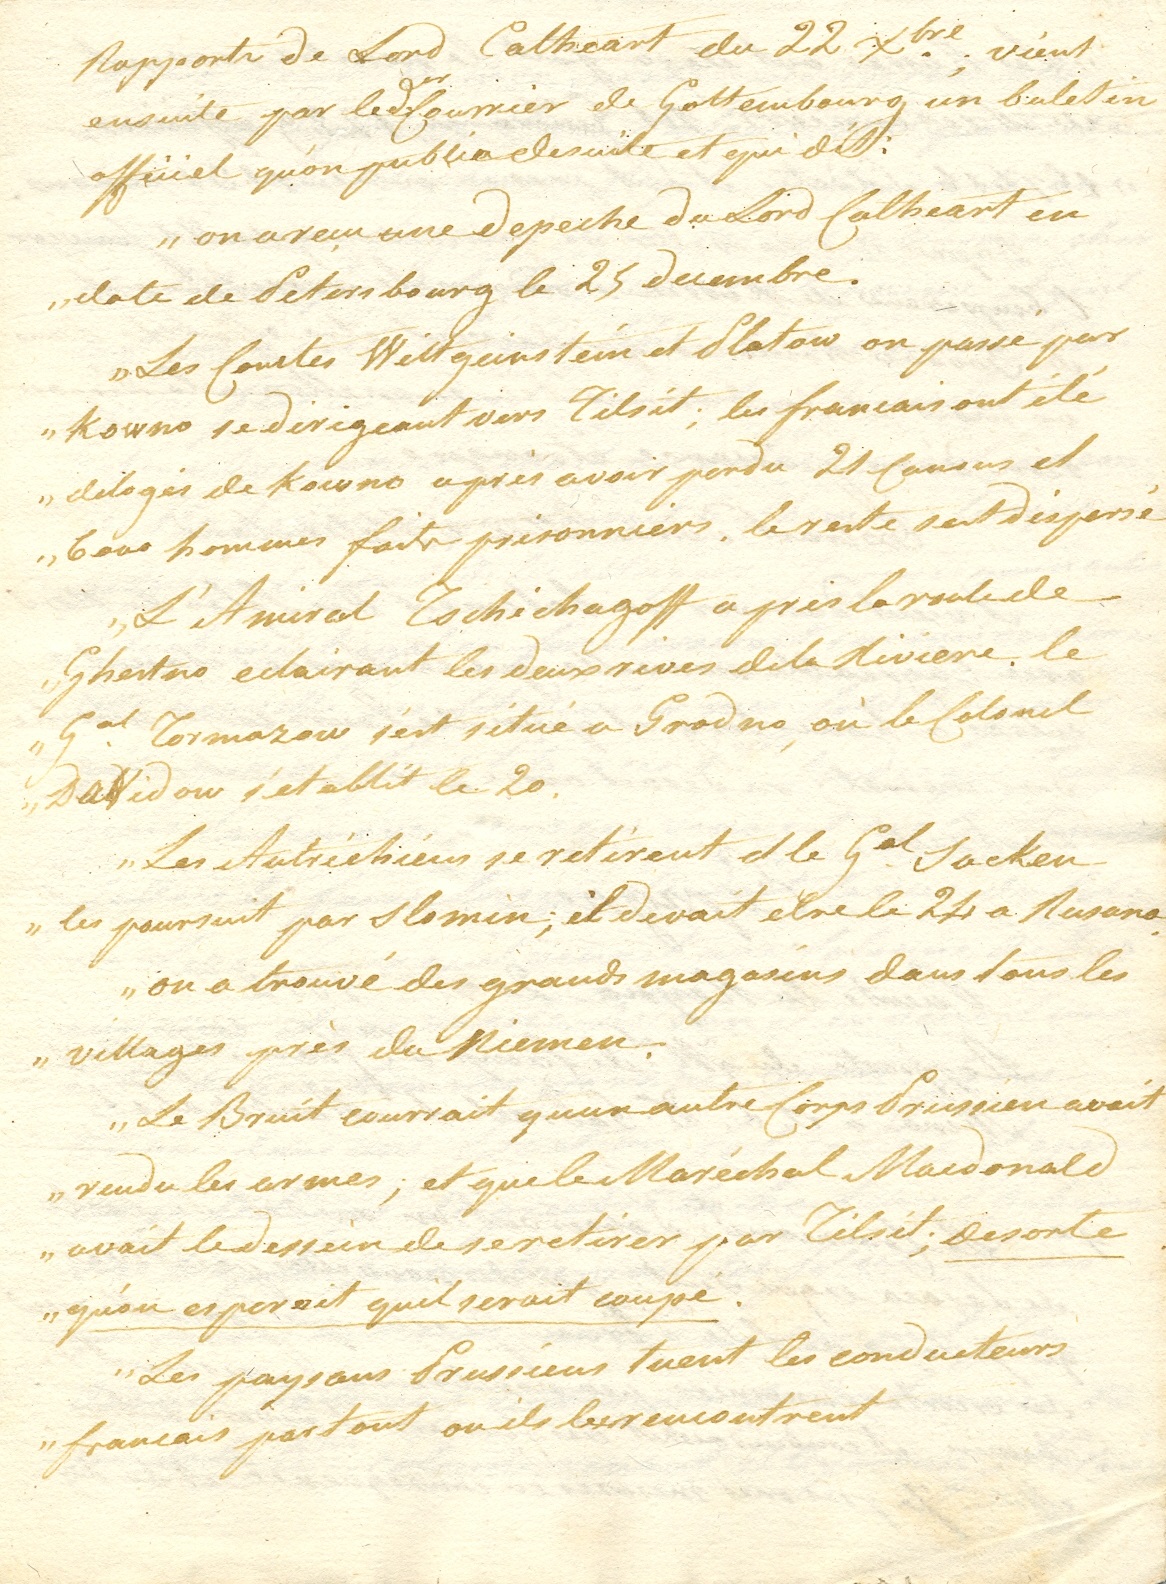 Rapports de Lord Cathcart du 22 Xbre.; vient
ensuite par le der Courrier de Gottembourg un buletin
officiel qu'on publia desuite et qui dit:
„ on a reçu une depeche du Lord Cathcart en
„ date de Petersbourg le 25 decembre.
„ Les Comtes Wittgeinstein et Platow on passé par
„ Kowno se dirigeant vers Tilsit; les francais ont été
„ delogés de Kowno après avoir perdu 21 Canons et
„ 6000 hommes faits prisonniers. le reste s'est dispersé
„ L'Amiral Tschichagoff a pris la route de
„ Ghestno eclairant les deux rives de la Riviere. le
„ Gal. Tormazow s'est situé a Grodno, où le Colonel
„ Davidow s'etablit le 20.
„ Les Autréchiens se retirent et le Gal. Sacken
„ les poursuit par Slonim; il devait etre le 24 a Rusana.
„ on a trouvé des grands magasins dans tous les
„ villages près du Niemen.
„ Le Bruit courrait qu'un autre Corps Prussien avait
„ rendu les armes; et que le Maréchal Macdonald
„ avait le dessein de se retirer par Tilsit; desorte
„ qu'on esperait qu'il serait coupé.
„ Les paysans Prussiens tuent les conducteurs
„ francais partout ou ils les rencontrent